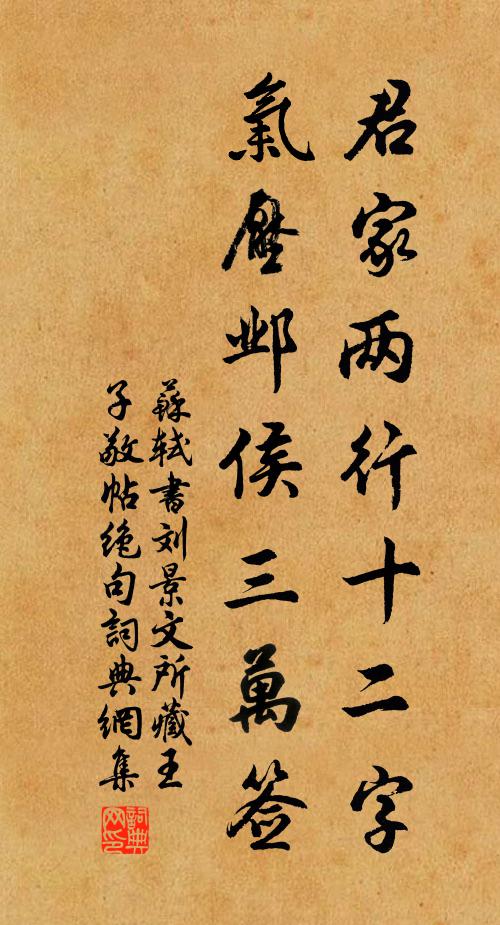 君家两行十二字
氣壓邺侯三萬签
蘇軾書刘景文所藏王
子敬帖绝句詞典網集
詞典
网印